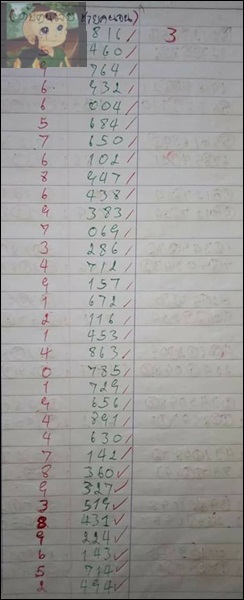 816/ 3
460/
9 764/
6 932/
6 004/
5 684/
7 650/
6 102/
8 947/
6 438/
9 383/
7 069/
3 286/
4 712/
9 157/
1 672/
2 116/
1 453/
4 863/
0 785/
1 729/
9 656/
4 891/
4 630/
7 142/
8 360✓
9 327✓
3 519✓
8 431✓
9 224✓
6 143✓
5 714✓
2 494✓